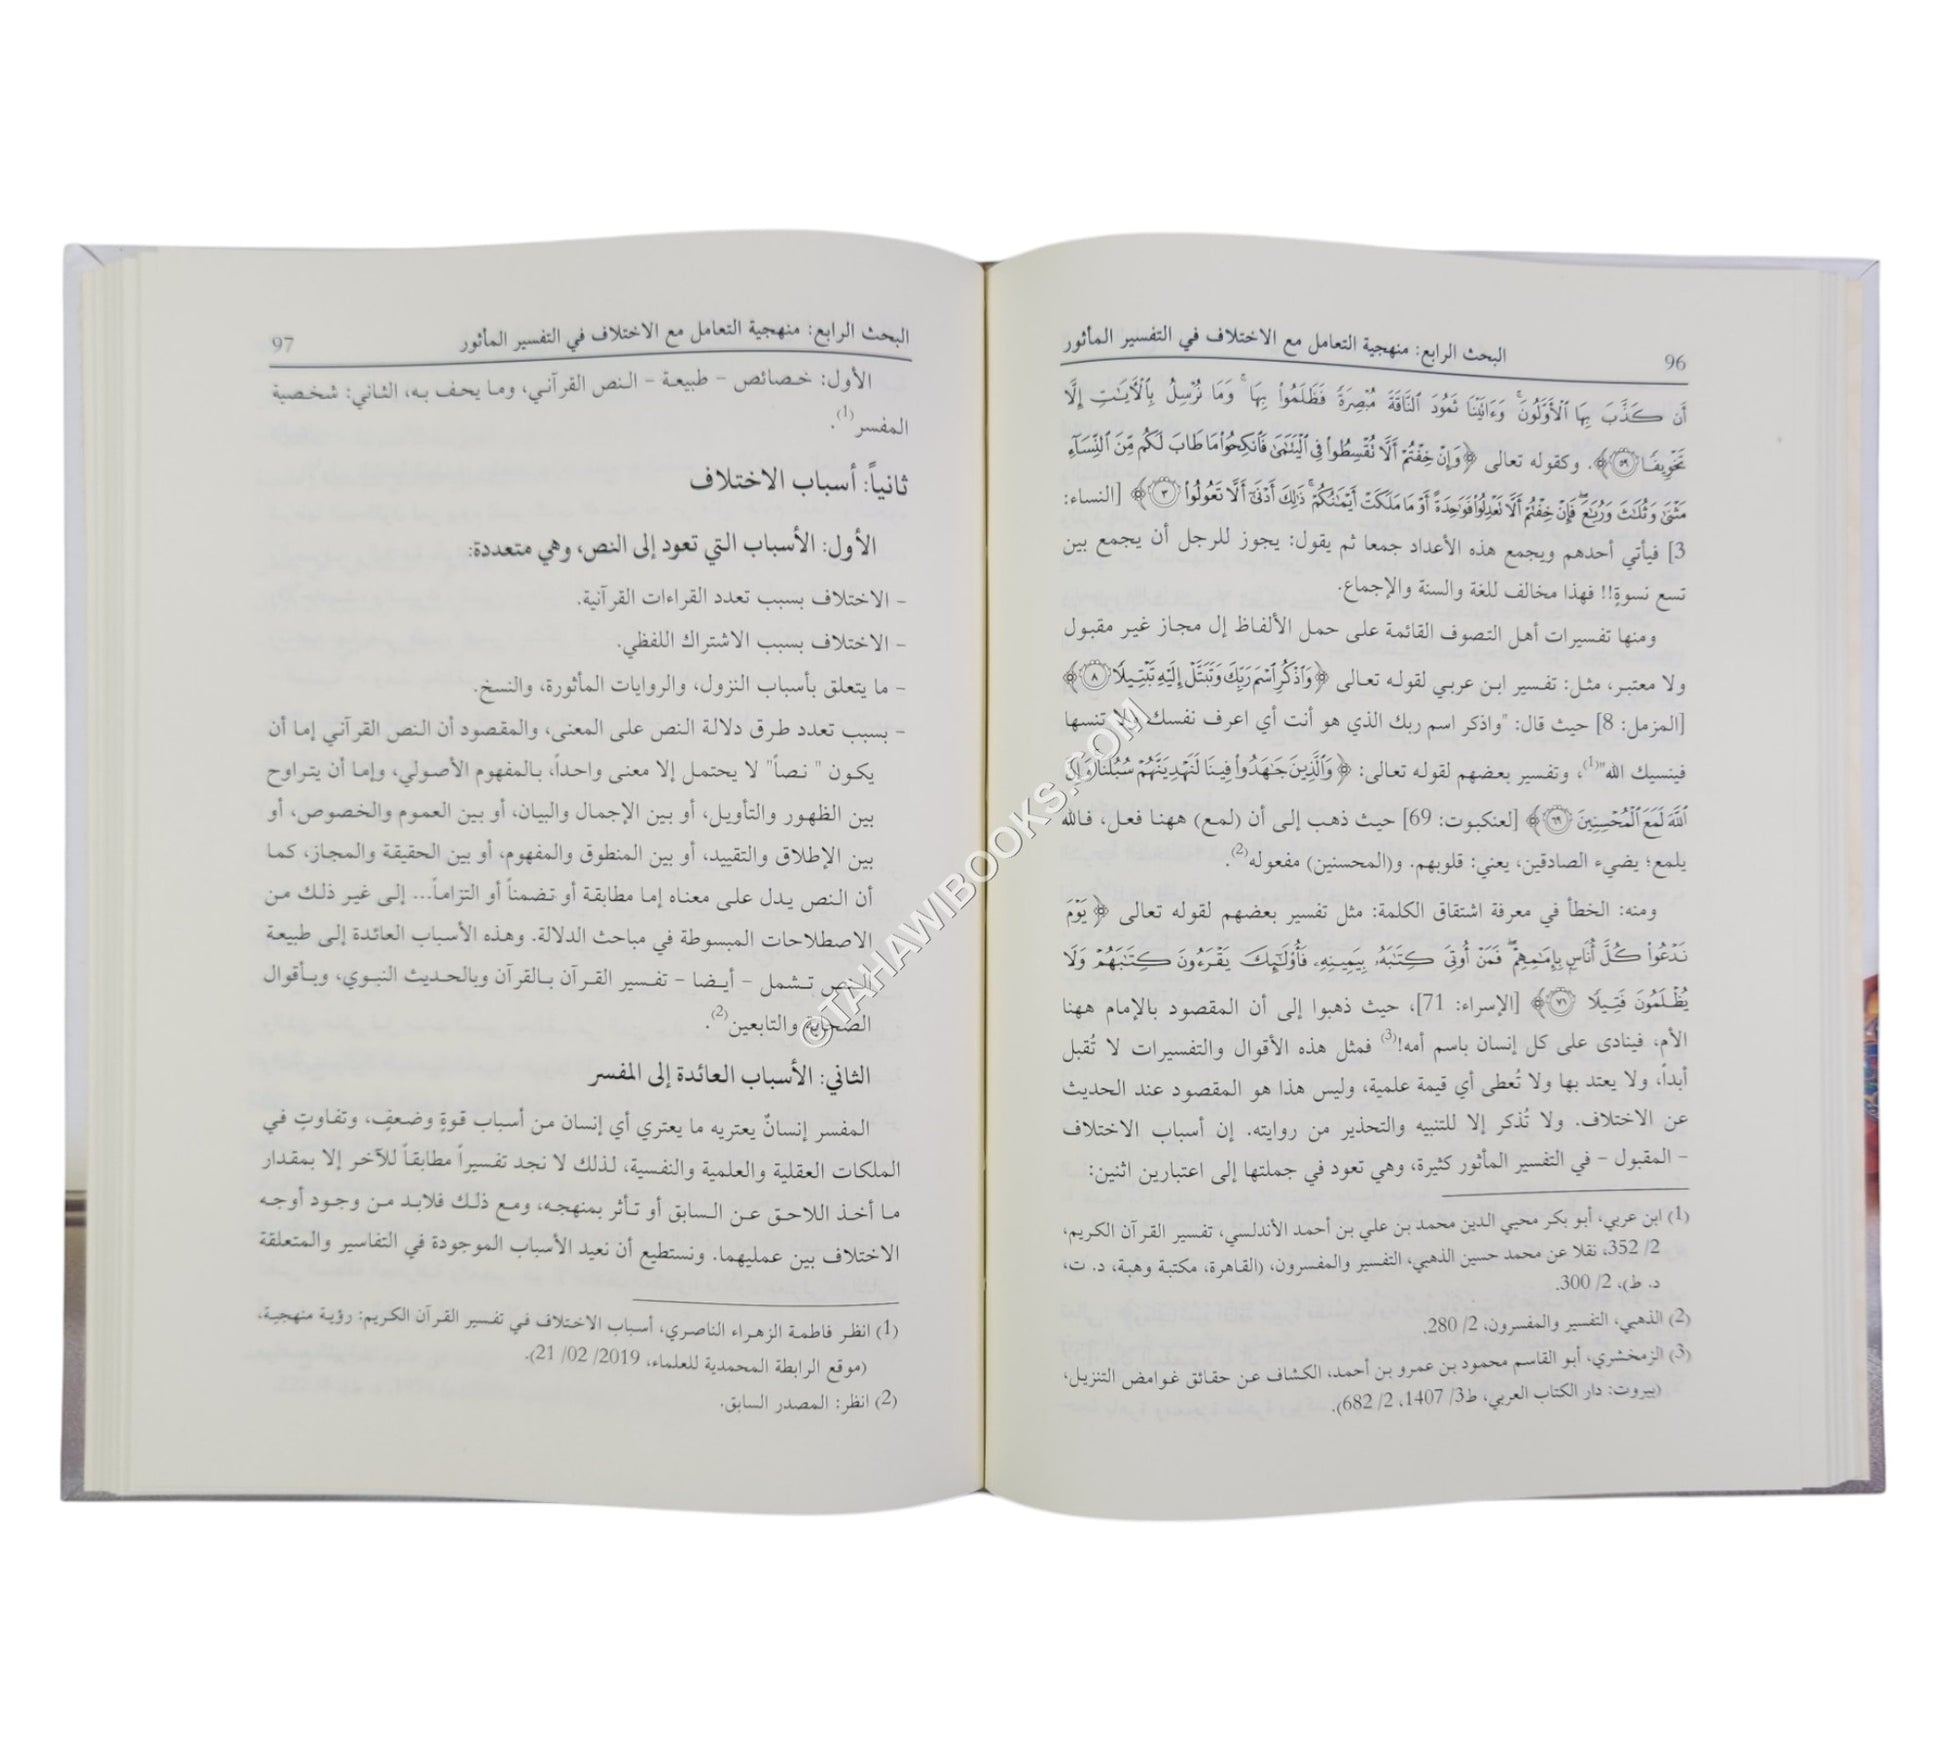 96
البحث الرابع: منهجية التعامل مع الاختلاف في التفسير المأثور
أَن كَذَّبَ بِهَا ٱلْأَوَّلُونَ ۚ وَءَاتَيْنَا ثَمُودَ ٱلنَّاقَةَ مُبْصِرَةً فَظَلَمُوا۟ بِهَا ۚ وَمَا نُرْسِلُ بِٱلْـَٔايَـٰتِ إِلَّا
تَخْوِيفًا ٥٩﴾. وكقوله تعالى ﴿وَإِنْ خِفْتُمْ أَلَّا تُقْسِطُوا۟ فِى ٱلْيَتَـٰمَىٰ فَٱنكِحُوا۟ مَا طَابَ لَكُم مِّنَ ٱلنِّسَآءِ
مَثْنَىٰ وَثُلَـٰثَ وَرُبَـٰعَ ۖ فَإِنْ خِفْتُمْ أَلَّا تَعْدِلُوا۟ فَوَٰحِدَةً أَوْ مَا مَلَكَتْ أَيْمَـٰنُكُمْ ۚ ذَٰلِكَ أَدْنَىٰٓ أَلَّا تَعُولُوا۟ ٣﴾ [النساء:
3] فيأتي أحدهم ويجمع هذه الأعداد جمعا ثم يقول: يجوز للرجل أن يجمع بين
تسع نسوةٍ!! فهذا مخالف للغة والسنة والإجماع.
ومنها تفسيرات أهل التصوف القائمة على حمل الألفاظ إل مجاز غير مقبول
ولا معتبر، مثل: تفسير ابن عربي لقوله تعالى ﴿وَٱذْكُرِ ٱسْمَ رَبِّكَ وَتَبَتَّلْ إِلَيْهِ تَبْتِيلًا ٨﴾
[المزمل: 8] حيث قال: "واذكر اسم ربك الذي هو أنت أي اعرف نفسك ولا تنسها
فينسيك الله"(1)، وتفسير بعضهم لقوله تعالى: ﴿وَٱلَّذِينَ جَـٰهَدُوا۟ فِينَا لَنَهْدِيَنَّهُمْ سُبُلَنَا ۚ وَإِنَّ
ٱللَّهَ لَمَعَ ٱلْمُحْسِنِينَ ٦٩﴾ [لعنكبوت: 69] حيث ذهب إلى أن (لمع) ههنا فعل، فالله
يلمع؛ يضيء الصادقين، يعني: قلوبهم. و(المحسنين) مفعوله(2).
ومنه: الخطأ في معرفة اشتقاق الكلمة: مثل تفسير بعضهم لقوله تعالى ﴿يَوْمَ
نَدْعُوا۟ كُلَّ أُنَاسٍۭ بِإِمَـٰمِهِمْ ۖ فَمَنْ أُوتِىَ كِتَـٰبَهُۥ بِيَمِينِهِۦ فَأُو۟لَـٰٓئِكَ يَقْرَءُونَ كِتَـٰبَهُمْ وَلَا
يُظْلَمُونَ فَتِيلًا ٧١﴾ [الإسراء: 71]، حيث ذهبوا إلى أن المقصود بالإمام ههنا
الأم، فينادى على كل إنسان باسم أمه!(3) فمثل هذه الأقوال والتفسيرات لا تُقبل
أبداً، ولا يعتد بها ولا تُعطى أي قيمة علمية، وليس هذا هو المقصود عند الحديث
عن الاختلاف. ولا تُذكر إلا للتنبيه والتحذير من روايته. إن أسباب الاختلاف
- المقبول - في التفسير المأثور كثيرة، وهي تعود في جملتها إلى اعتبارين اثنين:
(1) ابن عربي، أبو بكر محيي الدين محمد بن علي بن أحمد الأندلسي، تفسير القرآن الكريم،
2/ 352، نقلا عن محمد حسين الذهبي، التفسير والمفسرون، (القاهرة، مكتبة وهبة، د. ت،
د. ط)، 2/ 300.
(2) الذهبي، التفسير والمفسرون، 2/ 280.
(3) الزمخشري، أبو القاسم محمود بن عمرو بن أحمد، الكشاف عن حقائق غوامض التنزيل،
(بيروت: دار الكتاب العربي، ط3/ 1407، 2/ 682).
البحث الرابع: منهجية التعامل مع الاختلاف في التفسير المأثور
97
الأول: خصائص - طبيعة - النص القرآني، وما يحف به، الثاني: شخصية
المفسر(1).
ثانياً: أسباب الاختلاف
الأول: الأسباب التي تعود إلى النص، وهي متعددة:
- الاختلاف بسبب تعدد القراءات القرآنية.
- الاختلاف بسبب الاشتراك اللفظي.
- ما يتعلق بأسباب النزول، والروايات المأثورة، والنسخ.
- بسبب تعدد طرق دلالة النص على المعنى، والمقصود أن النص القرآني إما أن
يكون " نصاً" لا يحتمل إلا معنى واحداً، بالمفهوم الأصولي، وإما أن يتراوح
بين الظهور والتأويل، أو بين الإجمال والبيان، أو بين العموم والخصوص، أو
بين الإطلاق والتقييد، أو بين المنطوق والمفهوم، أو بين الحقيقة والمجاز، كما
أن النص يدل على معناه إما مطابقة أو تضمناً أو التزاماً... إلى غير ذلك من
الاصطلاحات المبسوطة في مباحث الدلالة. وهذه الأسباب العائدة إلى طبيعة
النص تشمل - أيضا - تفسير القرآن بالقرآن وبالحديث النبوي، وبأقوال
الصحابة والتابعين(2).
الثاني: الأسباب العائدة إلى المفسر
المفسر إنسانٌ يعتريه ما يعتري أي إنسان من أسباب قوةٍ وضعفٍ، وتفاوتٍ في
الملكات العقلية والعلمية والنفسية، لذلك لا نجد تفسيراً مطابقاً للآخر إلا بمقدار
ما أخذ اللاحق عن السابق أو تأثر بمنهجه، ومع ذلك فلابد من وجود أوجه
الاختلاف بين عمليهما. ونستطيع أن نعيد الأسباب الموجودة في التفاسير والمتعلقة
(1) انظر فاطمة الزهراء الناصري، أسباب الاختلاف في تفسير القرآن الكريم: رؤية منهجية،
(موقع الرابطة المحمدية للعلماء، 2019/ 02/ 21).
(2) انظر: المصدر السابق.
©TAHAWIBOOKS.COM